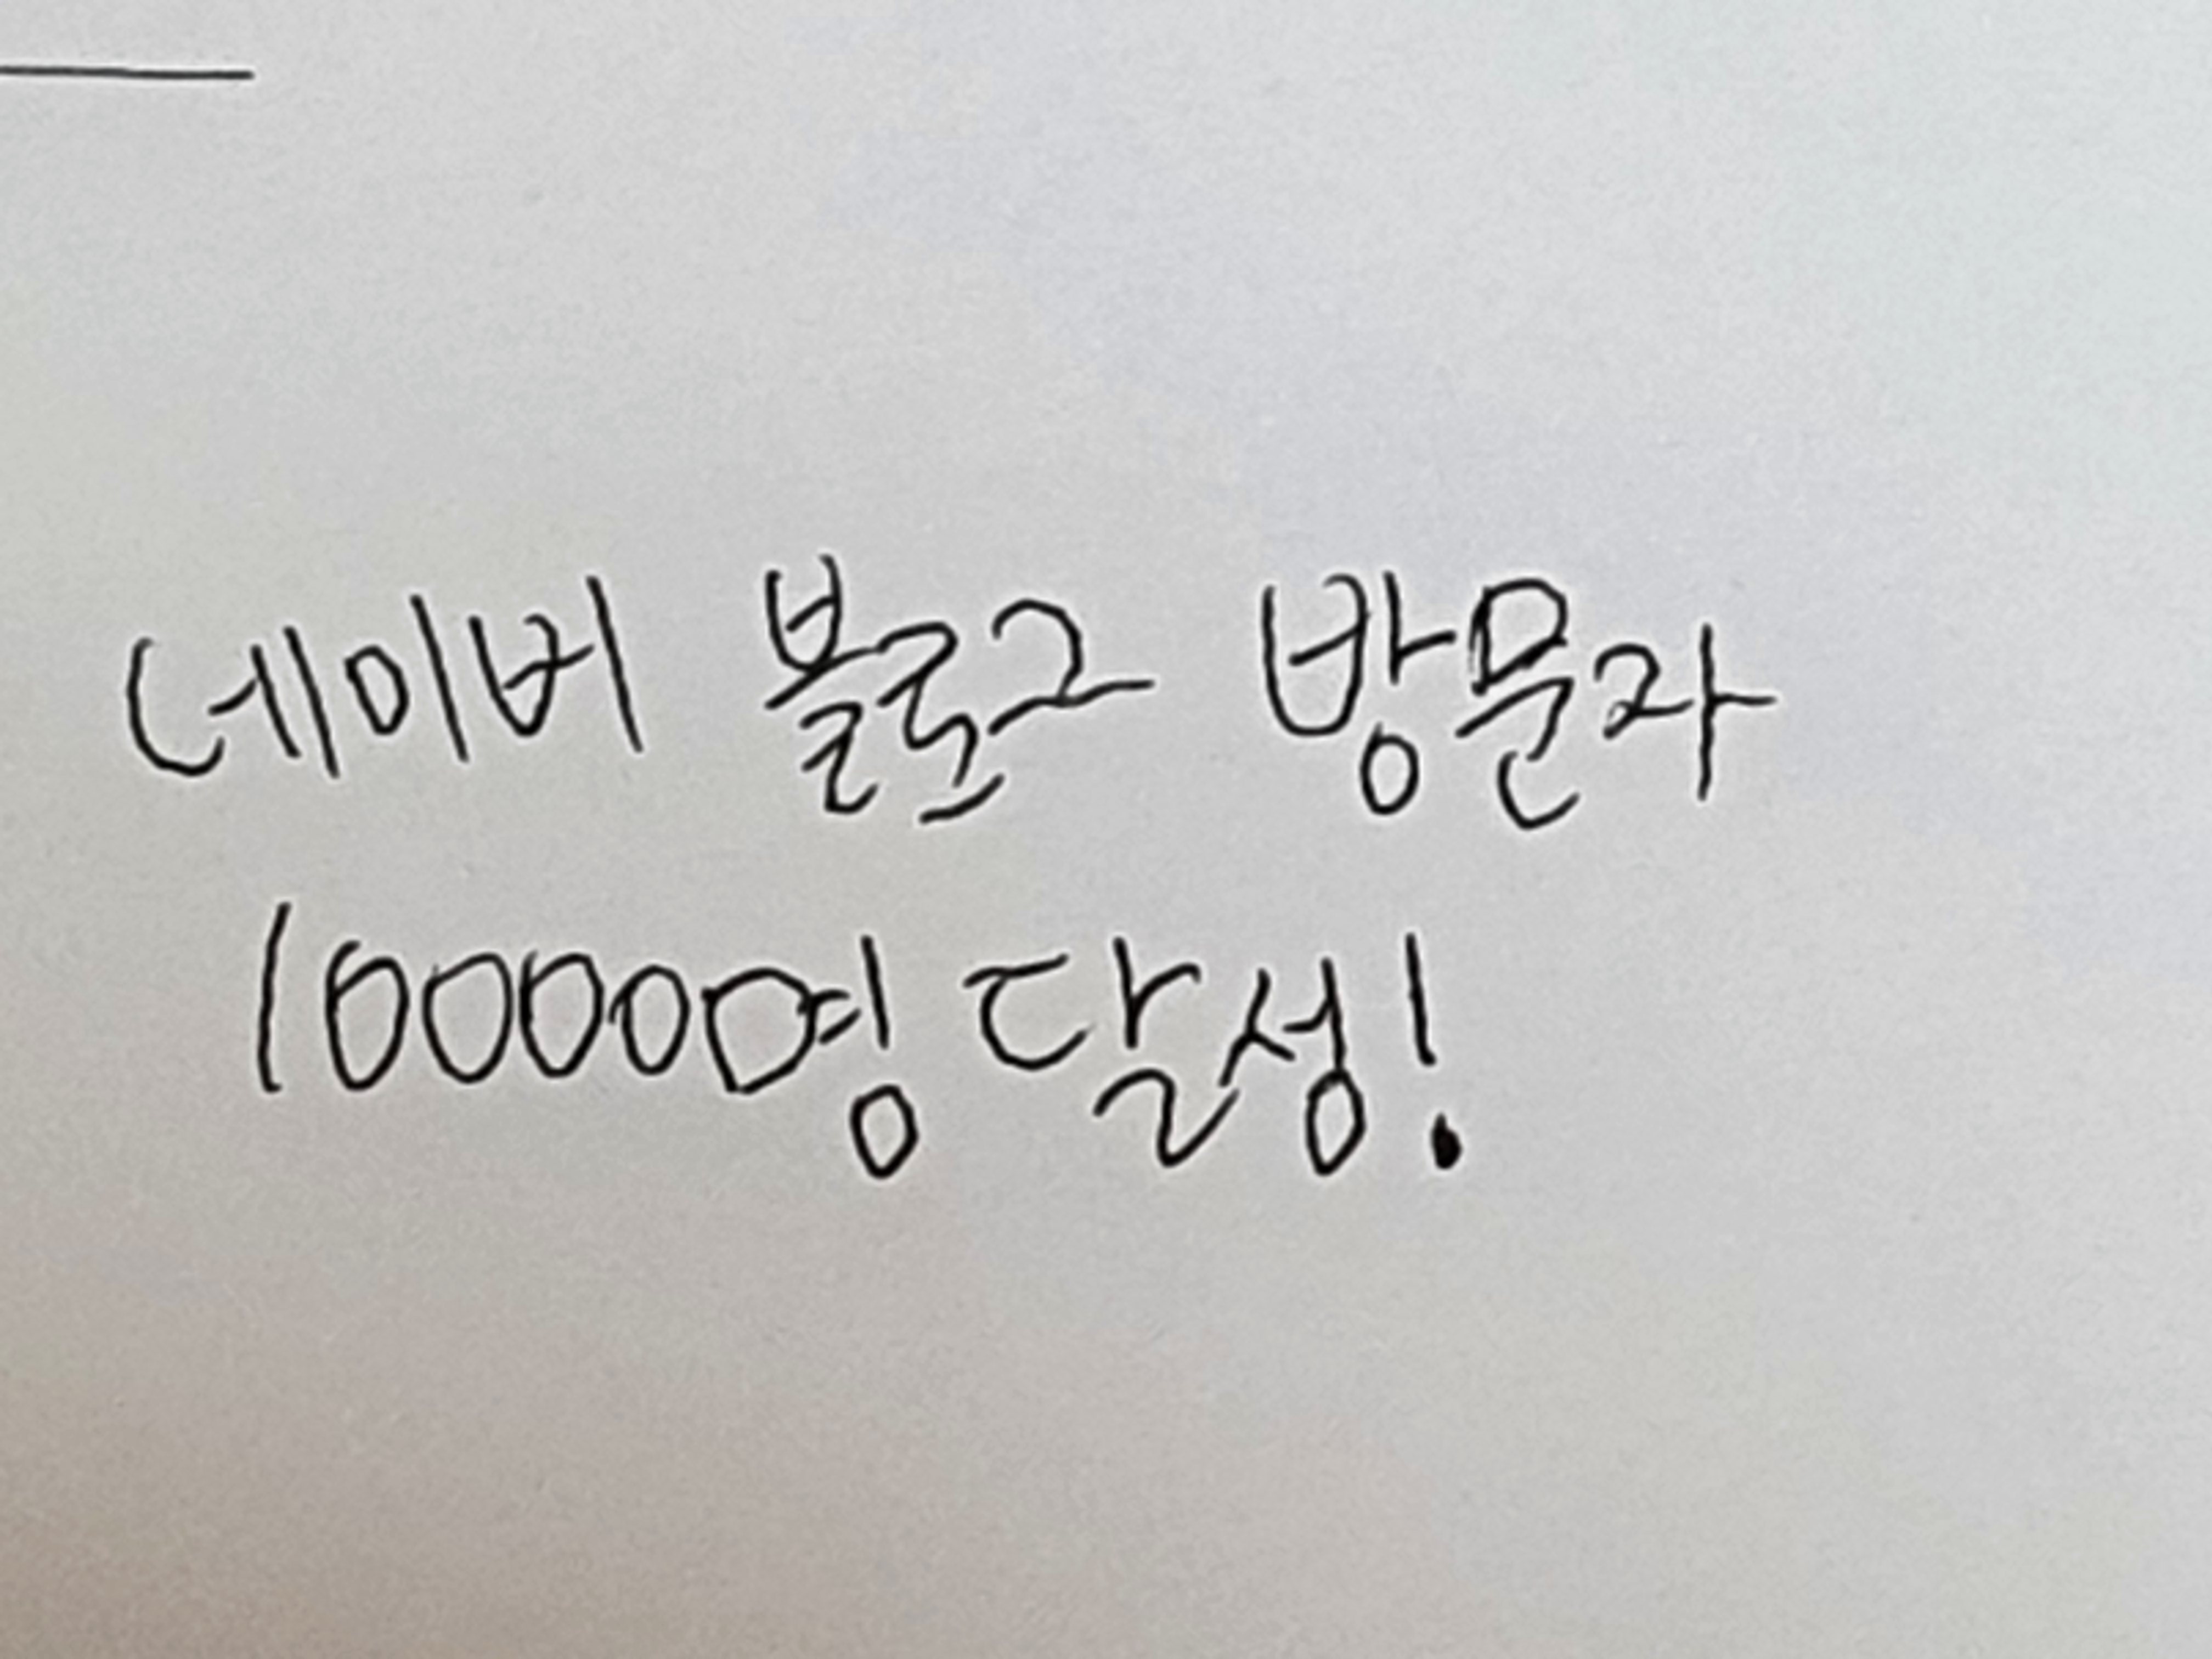 네이버 블로그 방문자
10000명 달성!